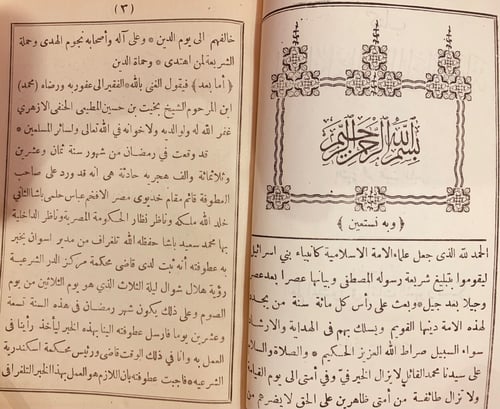 بسم الله الرحمن الرحيم
﴿ وبه نستعين ﴾
الحمد لله الذى جعل علماء الامة الاسلامية كانبياء بنى اسرائيل
ليقوموا بتبليغ شريعة رسوله المصطفى وبيانها عصرا بعد عصر
وجيلا بعد جيل * وبعث على رأس كل مائة سنة من يجدد
لهذه الامة دينها القويم ويسلك بهم فى الهداية والارشاد
سواء السبيل صراط الله العزيز الحكيم * والصلاة والسلام
على سيدنا محمد القائل لا يزال الخير فىّ وفى أمتى الى يوم القيامة
ولا تزال طائفة من أمتى ظاهرين على الحق لا يضرهم من
(٣)
خالفهم الى يوم الدين * وعلى آله وأصحابه نجوم الهدى وحملة
الشريعة لمن اهتدى * وحماة الدين
﴿ أما بعد ﴾ فيقول الغنى بالله * الفقير الى عفو ربه ورضاه (محمد)
ابن المرحوم الشيخ بخيت بن حسين المطيعى الحنفى الازهرى
غفر الله له ولوالديه ولاخوانه فى الله تعالى ولسائر المسلمين *
قد وقعت فى رمضان من شهور سنة ثمان وعشرين
وثلاثمائة والف هجريه حادثة هى انه قد ورد على صاحب
العطوفة قائم مقام خديوى مصر الافخم عباس حلمى باشا الثانى
خلد الله ملكه وناظر نظار الحكومة المصرية وناظر الداخلية
بها محمد سعيد باشا حفظه الله تلغراف من مدير اسوان يخبر
به عطوفته أنه ثبت لدى قاضى محكمة مركز الدر الشرعية
رؤية هلال شوال ليلة الثلاث الذى هو يوم الثلاثين من يوم
الصوم وعلى ذلك يكون شهر رمضان فى هذه السنة تسعة
وعشرين يوما فارسل عطوفته الينا بهذه الخبر ليأخذ رأينا فى
العمل به وانا فى ذلك الوقت قاضى ورئيس محكمة اسكندرية
الشرعيه * فاجبت عطوفته بان اللازم هو العمل بهذا الخبر التلغرافى